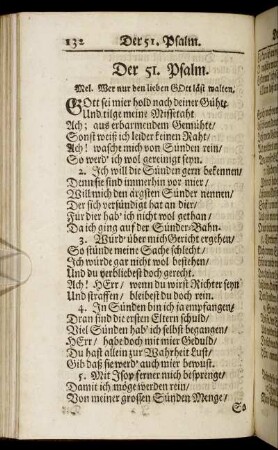 132 Der 51. Psalm.
Der 51. Psalm.
Mel. Wer nur den lieben GOtt läst walten.
GOtt sei mir hold nach deiner Gühte/
Und tilge meine Missetaht
Ach; aus erbarmendem Gemühte/
Sonst weiß ich leider keinen Raht/
Ach! wasche mich von Sünden rein/
So werd' ich wol gereinigt seyn.
2. Ich will die Sünden gern bekennen/
Denn sie sind immerhin vor mier/
Will mich den ärgsten Sünder nennen/
Der sich versündigt hat an dier/
Für dier hab' ich nicht wol gethan/
Da ich ging auf der Sünden-Bahn.
3. Würd' über mich Gericht ergehen/
So stünde meine Sache schlecht/
Ich würde gar nicht wol bestehen/
Und du verbliebest doch gerecht.
Ach! HErr/ wenn du wirst Richter seyn
Und straffen/ bleibest du doch rein.
4. In Sünden bin ich ja empfangen/
Dran sind die ersten Eltern schuld/
Viel Sünden hab' ich selbst begangen/
HErr/ habe doch mit mier Geduld/
Du hast allein zur Wahrheit Lust/
Gib daß sie werd' auch mier bewust.
5. Mit Isop ferner mich besprenge/
Damit ich möge werden rein/
Von meiner grossen Sünden Menge/
So